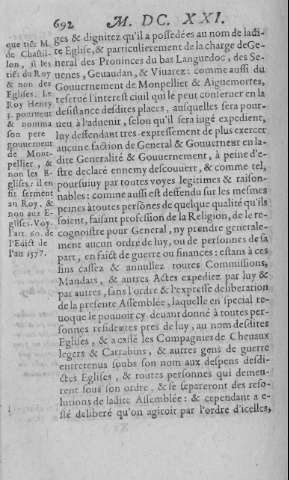 692 M. DC. XXI.
que tiēt M.
de Chastil-
lon, si les
tiēt du Roy
& non des
Eglises. Le
Roy Henry
3. pourueut
& nomma
son pere
gouuerneur
de Mont-
pellier, &
non les E-
glises, & il en
fit serment
au Roy, &
non aux E-
glises. Voy.
l'art. 60. de
l'Edict de
l'an 1577.
ges & dignitez qu'il a possedées au nom de ladi-
te Eglise, & particulierement de la charge de Ge-
neral des Prouinces du bas Languedoc, des Se-
uenes, Geuaudan, & Viuarez: comme aussi du
Gouuernement de Montpellier & Aiguemortes,
reserué l'interest ciuil qui le peut conseruer en la
desistance desdites places, ausquelles sera pour-
ueu à l'aduenir, selon qu'il sera iugé expedient,
luy desfendant tres-expressement de plus exercer
aucune faction de General & Gouuerneur en la-
dite Generalité & Gouuernement, à peine d'e-
stre declaré ennemy descouuert, & comme tel,
poursuiuy par toutes voyes legitimes & raison-
nables: comme aussi est desfendu sur les mesmes
peines à toutes persōnes de quelque qualité qu'ils
soient, faisant profession de la Religion, de le re-
cognoistre pour General, ny prendre generale-
ment aucun ordre de luy, ou de personnes de sa
part, en faict de guerre ou finances: estans à ces
fins cassez & annullez toutes Commissions,
Mandats, & autres Actes expediez par luy &
par autres, sans l'ordre & l'expresse deliberation
de la presente Assemblée, laquelle en special re-
uoque le pouuoir cy-deuant donné à toutes per-
sonnes residentes pres de luy, au nom desdites
Eglises, & a cassé les Compagnies de Cheuaux
legers & Carrabins, & autres gens de guerre
entretenus soubs son nom aux despens desdi-
ctes Eglises, & toutes personnes qui demeu-
rent sous son ordre, & se separeront des reso-
lutions de ladite Assemblée: & cependant a e-
sté deliberé qu'on agiroit par l'ordre d'icelles,